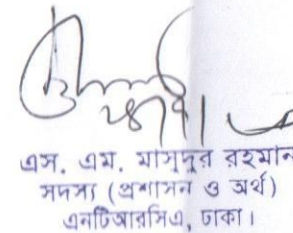 এস. এম. মাসুদুর রহমান
সদস্য (প্রশাসন ও অর্থ)
এনটিআরসিএ, ঢাকা।